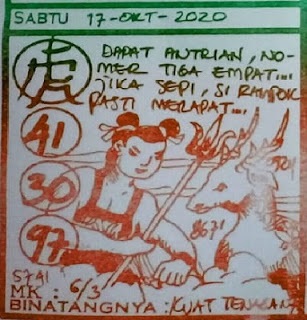 SABTU 17-OKT-2020
DAPAT ANTRIAN, NO-
MER TIGA EMPAT...
JIKA SEPI, SI RAMPOK
PASTI MELAPAT...
41
30
97
8671
MK : 6/3
BINATANGNYA : KUAT TENAGANYA